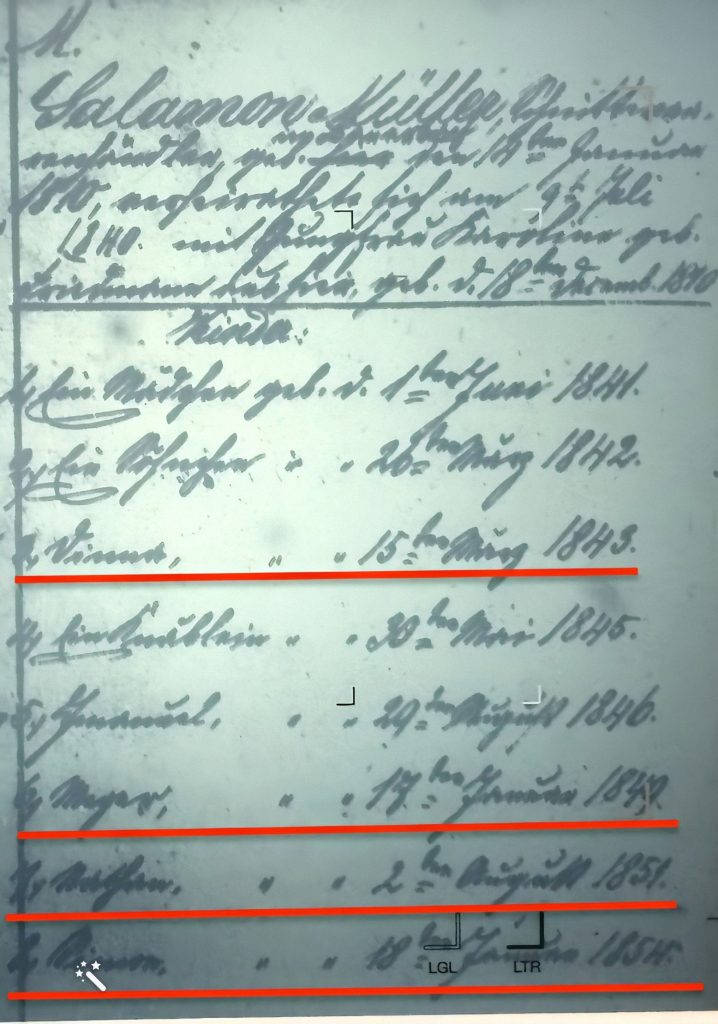 M.
Salamon Müller, Schnittwaa-
renhändler, geb. den 12ten Januar
1810, verheirathete sich am 9t Juli
1840. mit Jungfrau Karoline geb.
Friedmann aus geb. d. 18ten Decemb. 1810
Kinder:
1, Ein Mädchen geb. d. 1ten Juni 1841.
2, Ein Söhnchen " " 26ten März 1842.
3, Dinna, " " 15ten März 1843.
4, Ein Knäblein " " 30ten Mai 1845.
5, Emanuel, " " 29ten August 1846.
6, Meyer, " " 17ten Januar
7, Nathan, " " 2ten August 1851.
8, " " 18ten Januar 1854.
LGL LTR